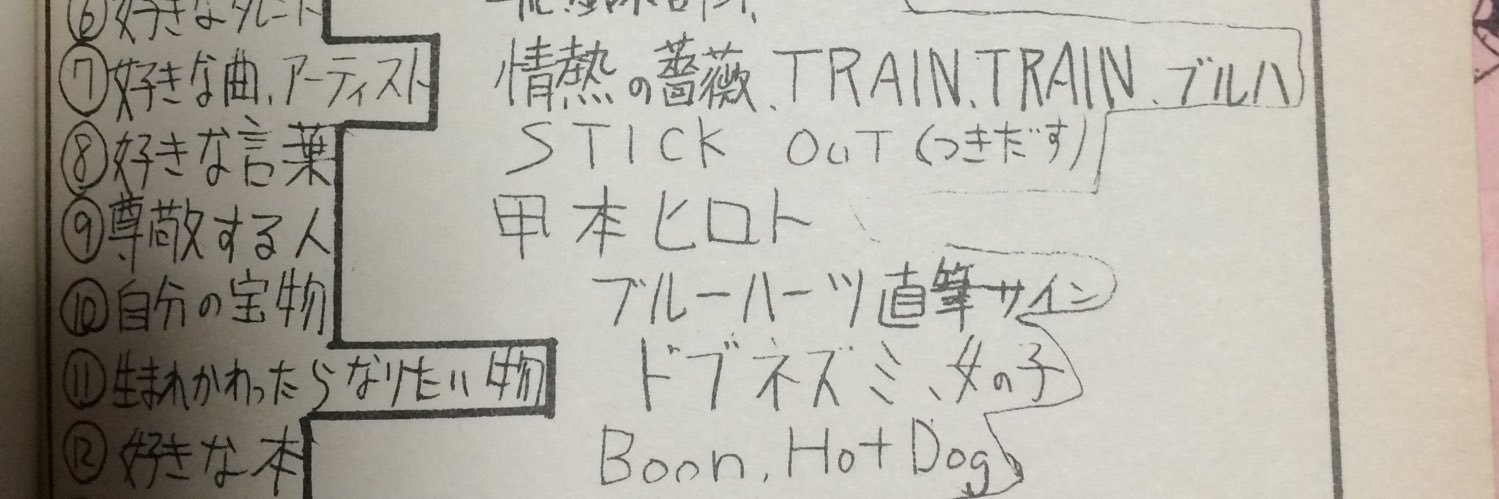 ⑥好きなタレント
⑦好きな曲、アーティスト 情熱の薔薇、TRAIN、TRAIN、ブルハ
⑧好きな言葉 STICK OUT (つきだす)
⑨尊敬する人 甲本ヒロト
⑩自分の宝物 ブルーハーツ直筆サイン
⑪生まれかわったらなりたい物 ドブネズミ、女の子
⑫好きな本 Boon, Hot Dog